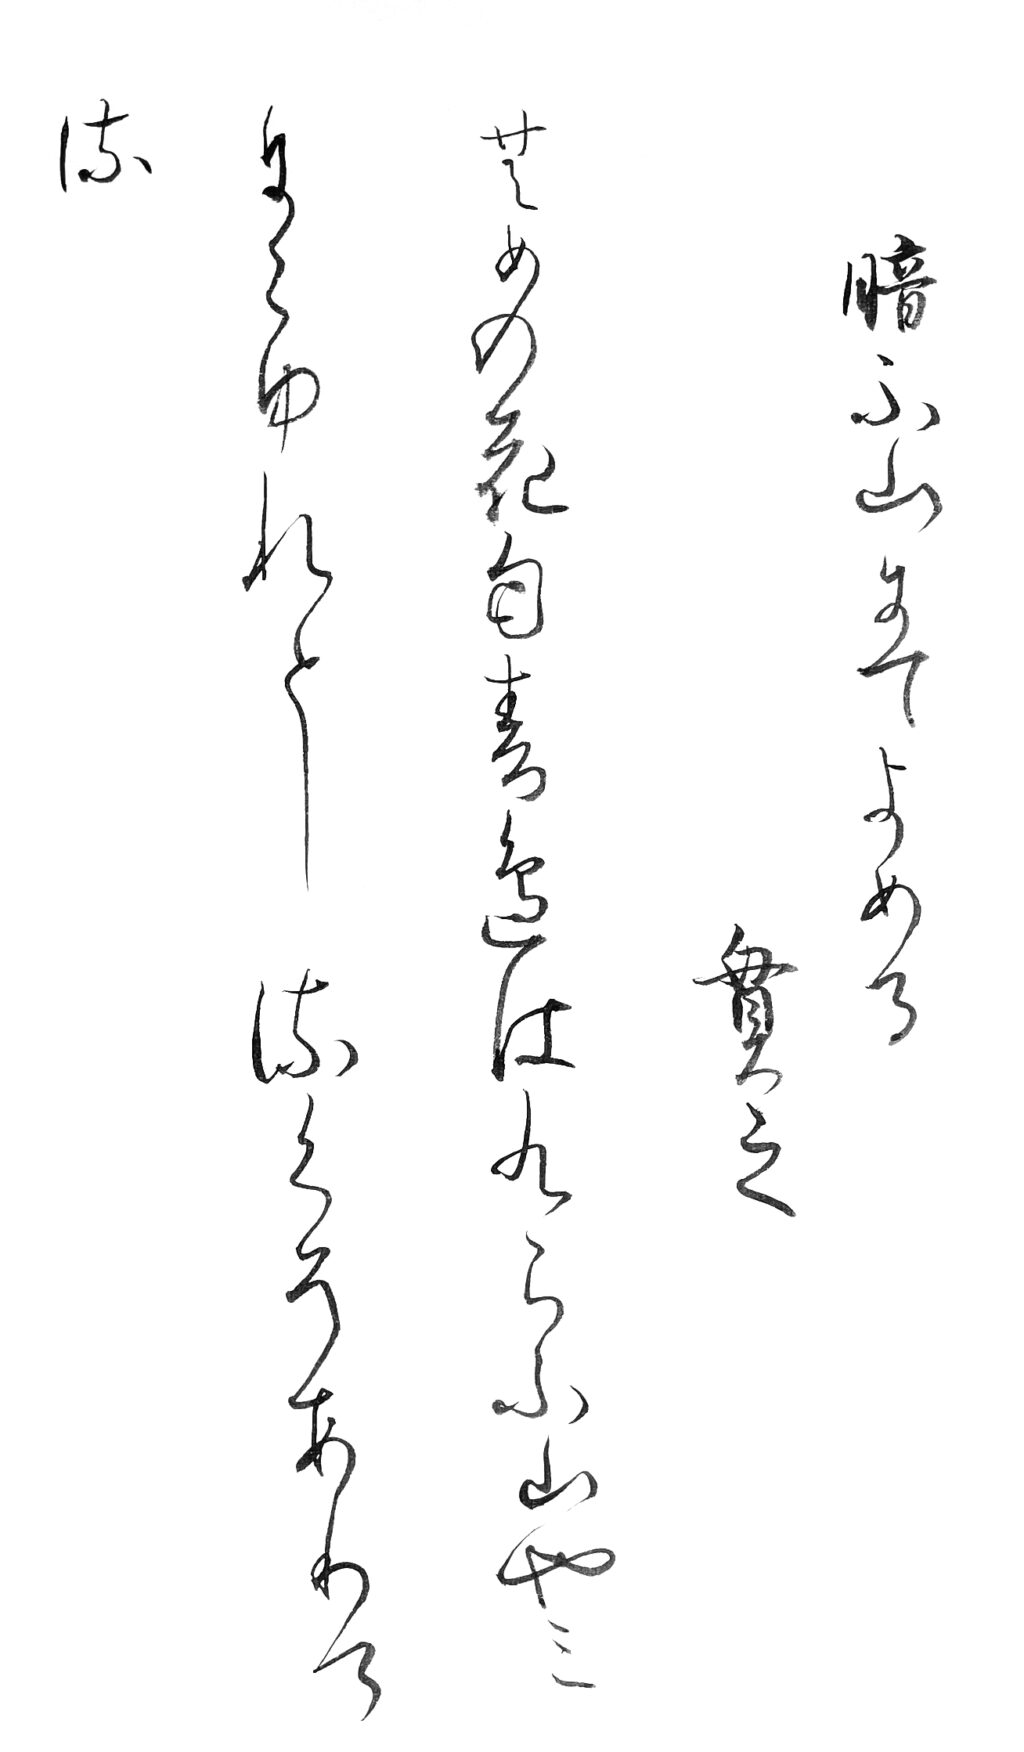 暗ふ山にてよめる
貫之
むめの花匂春邊はくらふ山やみ
にこゆれとしるくそありけ
る